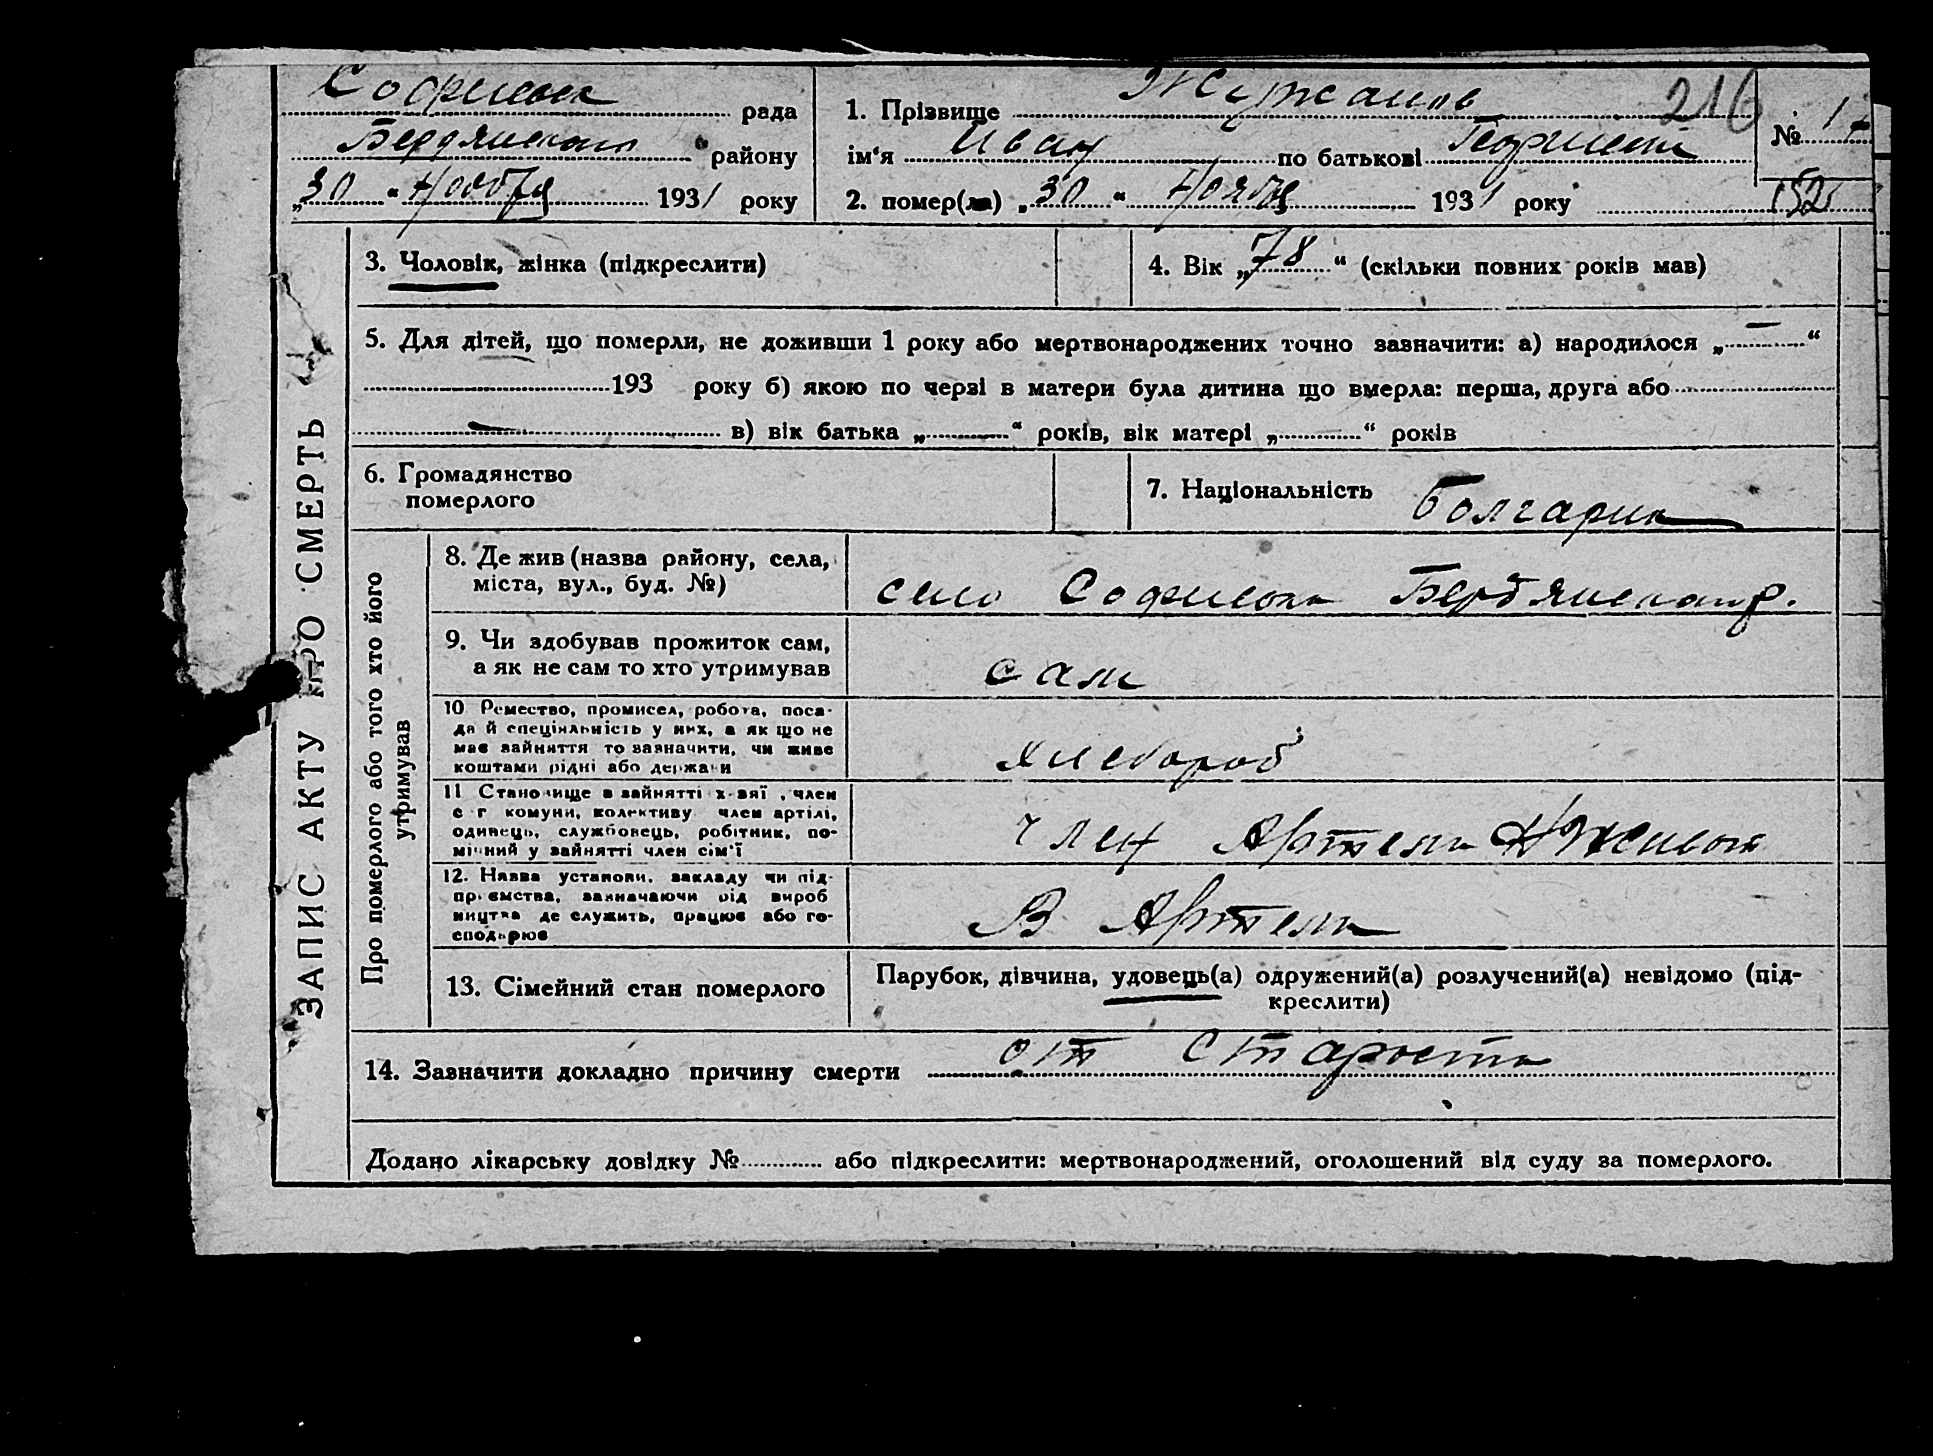 рада
Бердянского району
„30“ Ноября 1931 року
216
1. Прізвище
ім‘я Иван по батькові
2. помер(ла) „30“ Ноября 1931 року
№
152
ЗАПИС АКТУ ПРО СМЕРТЬ
3. Чоловік, жінка (підкреслити)
4. Вік „78“ (скільки повних років мав)
5. Для дітей, що померли, не доживши 1 року або мертвонароджених точно зазначити: а) народилося „ — “
193 року б) якою по черзі в матери була дитина що вмерла: перша, друга або
— в) вік батька „ “ років, вік матері „ “ років
6. Громадянство
померлого
7. Національність Болгарин
Про померлого або того хто його
утримував
8. Де жив (назва району, села,
міста, вул., буд. №)
село Бердянского р.
9. Чи здобував прожиток сам,
а як не сам то хто утримував
сам
10 Ремество, промисел, робота, поса-
да й спеціяльність у них, а як що не
має зайняття то зазначити, чи живе
коштами рідні або держави
хлебороб
11 Становище в зайнятті х-зяї , член
с г комуни, колективу член артілі,
одинець, службовець, робітник, по-
мічний у зайнятті член сім'ї
член Артели
12. Назва установи, закладу чи під-
приємства, зазначаючи рід вироб
ництва де служить, працює або го-
сподарює
В Артели
13. Сімейний стан померлого
Парубок, дівчина, удовець(а) одружений(а) розлучений(а) невідомо (під-
креслити)
14. Зазначити докладно причину смерти от старости
Додано лікарську довідку № або підкреслити: мертвонароджений, оголошений від суду за померлого.